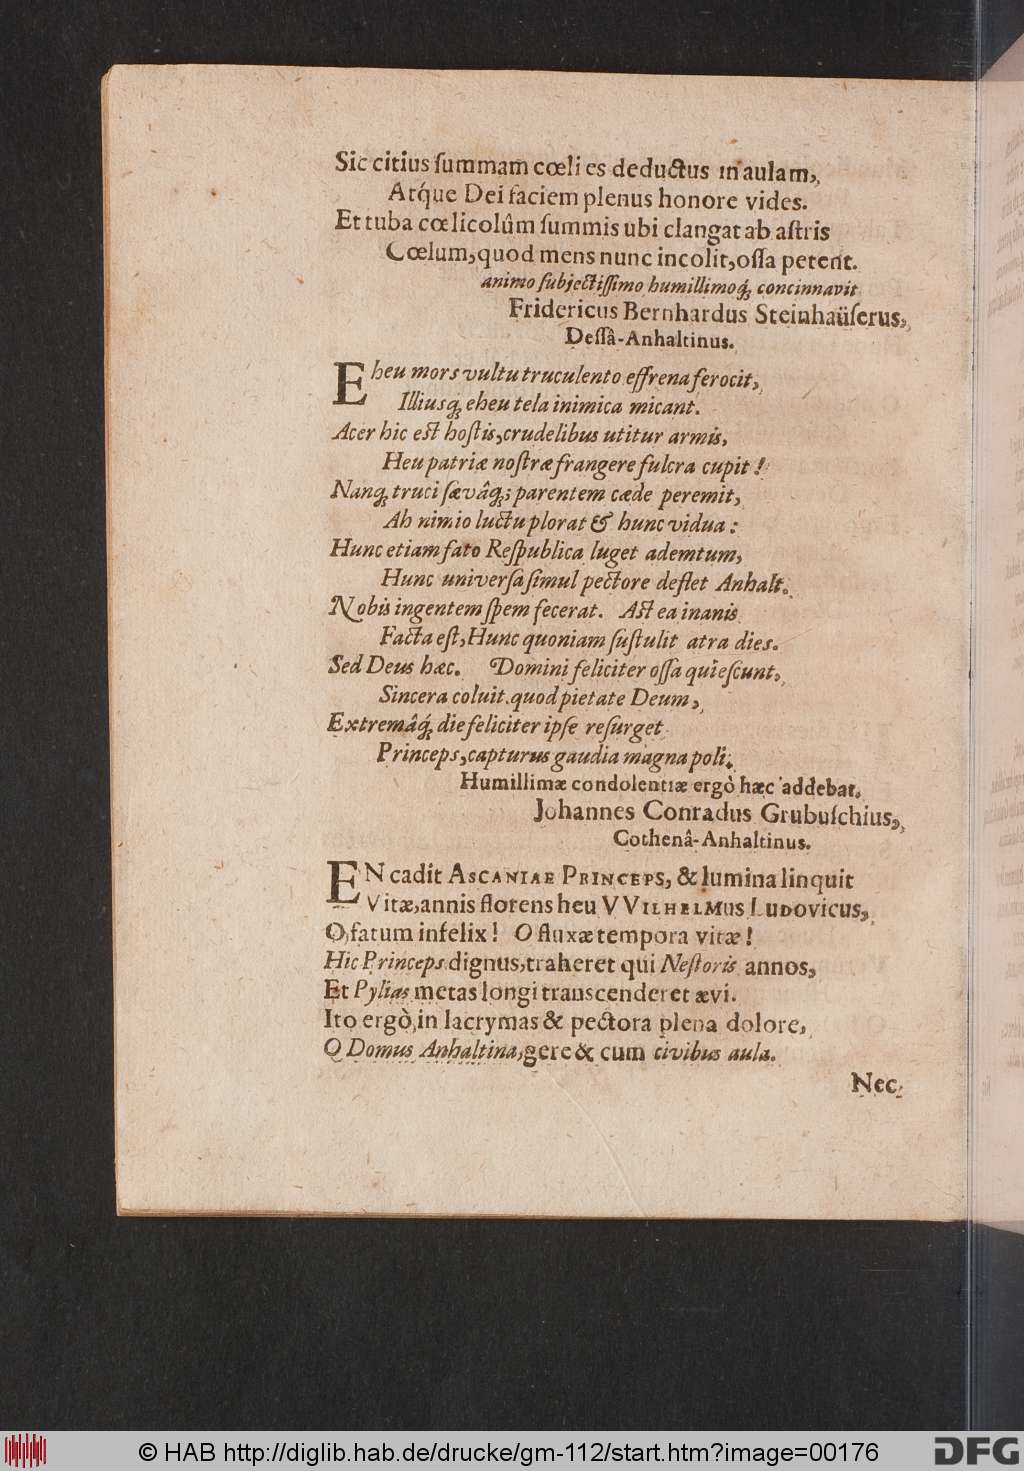 Sic citius ſummam cœli es deductus in aulam,
Atq́ue Dei faciem plenus honore vides.
Et tuba cœlicolûm ſummis ubi clangat ab aſtris
Cœlum, quod mens nunc incolit, oſſa petent.
animo ſubjectiſſimo humillimoq́; concinnavit
Fridericus Bernhardus Steinhaüſerus,
Deſſâ-Anhaltinus.
Eheu mors vultu truculento effrena ferocit,
Illiusq; eheu tela inimica micant.
Acer hic est hoſtis, crudelibus utitur armis,
Heu patriæ noſtræ frangere fulcra cupit!
Nanq; truci ſævâq́; parentem cæde peremit,
Ah nimio luctu plorat & hunc vidua:
Hunc etiam fato Reſpublica luget ademtum,
Hunc univerſa ſimul pectore deflet Anhalt.
Nobis ingentem ſpem fecerat. Aſt ea inanis
Facta eſt, Hunc quoniam ſuſtulit atra dies.
Sed Deus hæc. Domini feliciter oſſa quieſcunt,
Sincera coluit quod pietate Deum,
Extremâq́; die feliciter ipſe reſurget
Princeps, capturus gaudia magna poli.
Humillimæ condolentiæ ergò hæc addebat
Johannes Conradus Grubuſchius,
Cothenâ-Anhaltinus.
EN cadit ASCANIAE PRINCEPS, & lumina linquit
Vitæ, annis florens heu VVILHELMUS LUDOVICUS,
O, fatum infelix! O fluxæ tempora vitæ!
Hic Princeps dignus, traheret qui Neſtoris annos,
Et Pylias metas longi transcenderet ævi.
Ito ergò, in lacrymas & pectora plena dolore,
O Domus Anhaltina, gere & cum civibus aula.
Nec
© HAB http://diglib.hab.de/drucke/gm-112/start.htm?image=00176
DFG